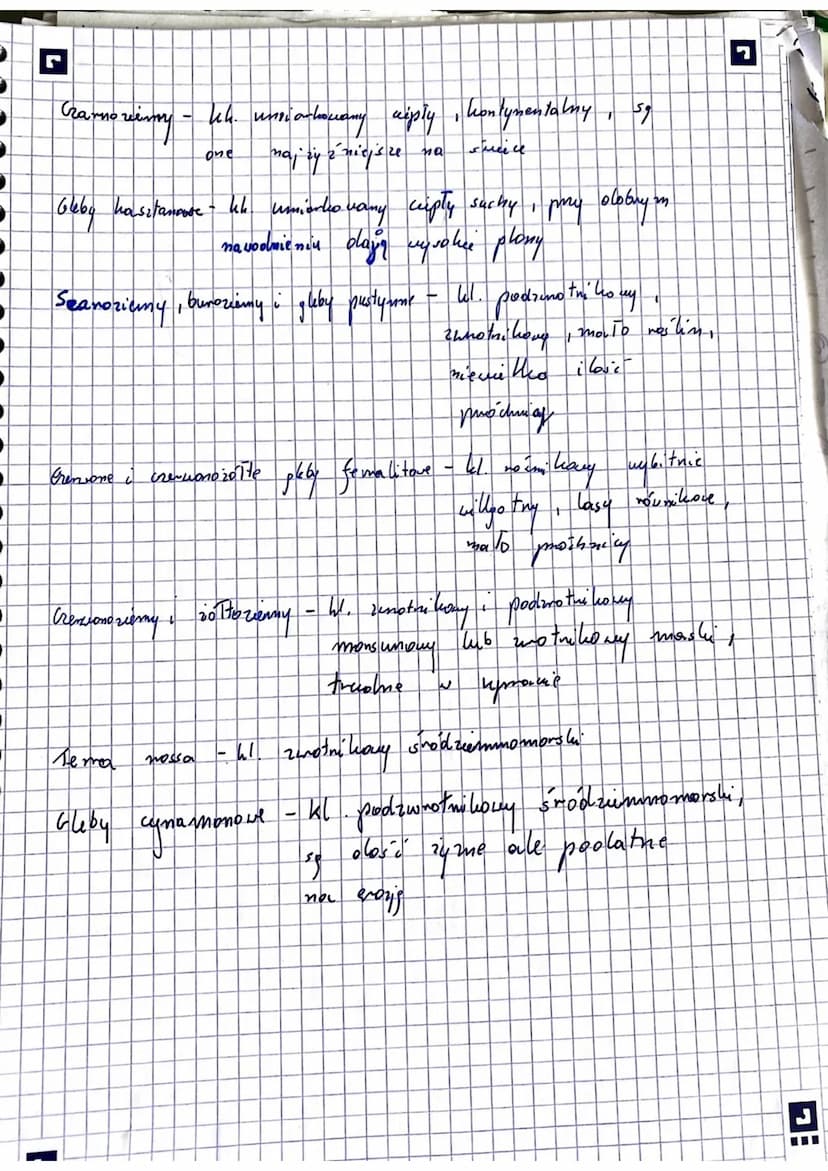 Czarnoziemy - kl. umiarkowany ciepły, kontynentalny, są
one najżyźniejsze na świecie
Gleby kasztanowe - kl. umiarkowany ciepły suchy, przy dobrym
nawodnieniu dają wysokie plony
Szaroziemy, buroziemy i gleby pustynne - kl. podzwrotnikowy,
zwrotnikowy, mało roślin,
niewielka ilość
próchnicy
Czerwone i czerwonożółte gleby ferralitowe - kl. równikowy wybitnie
wilgotny, lasy równikowe,
mało próchnicy
Czerwonoziemy i żółtoziemy - kl. zwrotnikowy i podzwrotnikowy
monsunowy lub zwrotnikowy morski,
trudne w uprawie
Terra rossa - kl. zwrotnikowy śródziemnomorski
Gleby cynamonowe - kl. podzwrotnikowy śródziemnomorski,
są dość żyzne ale podatne
na erozję